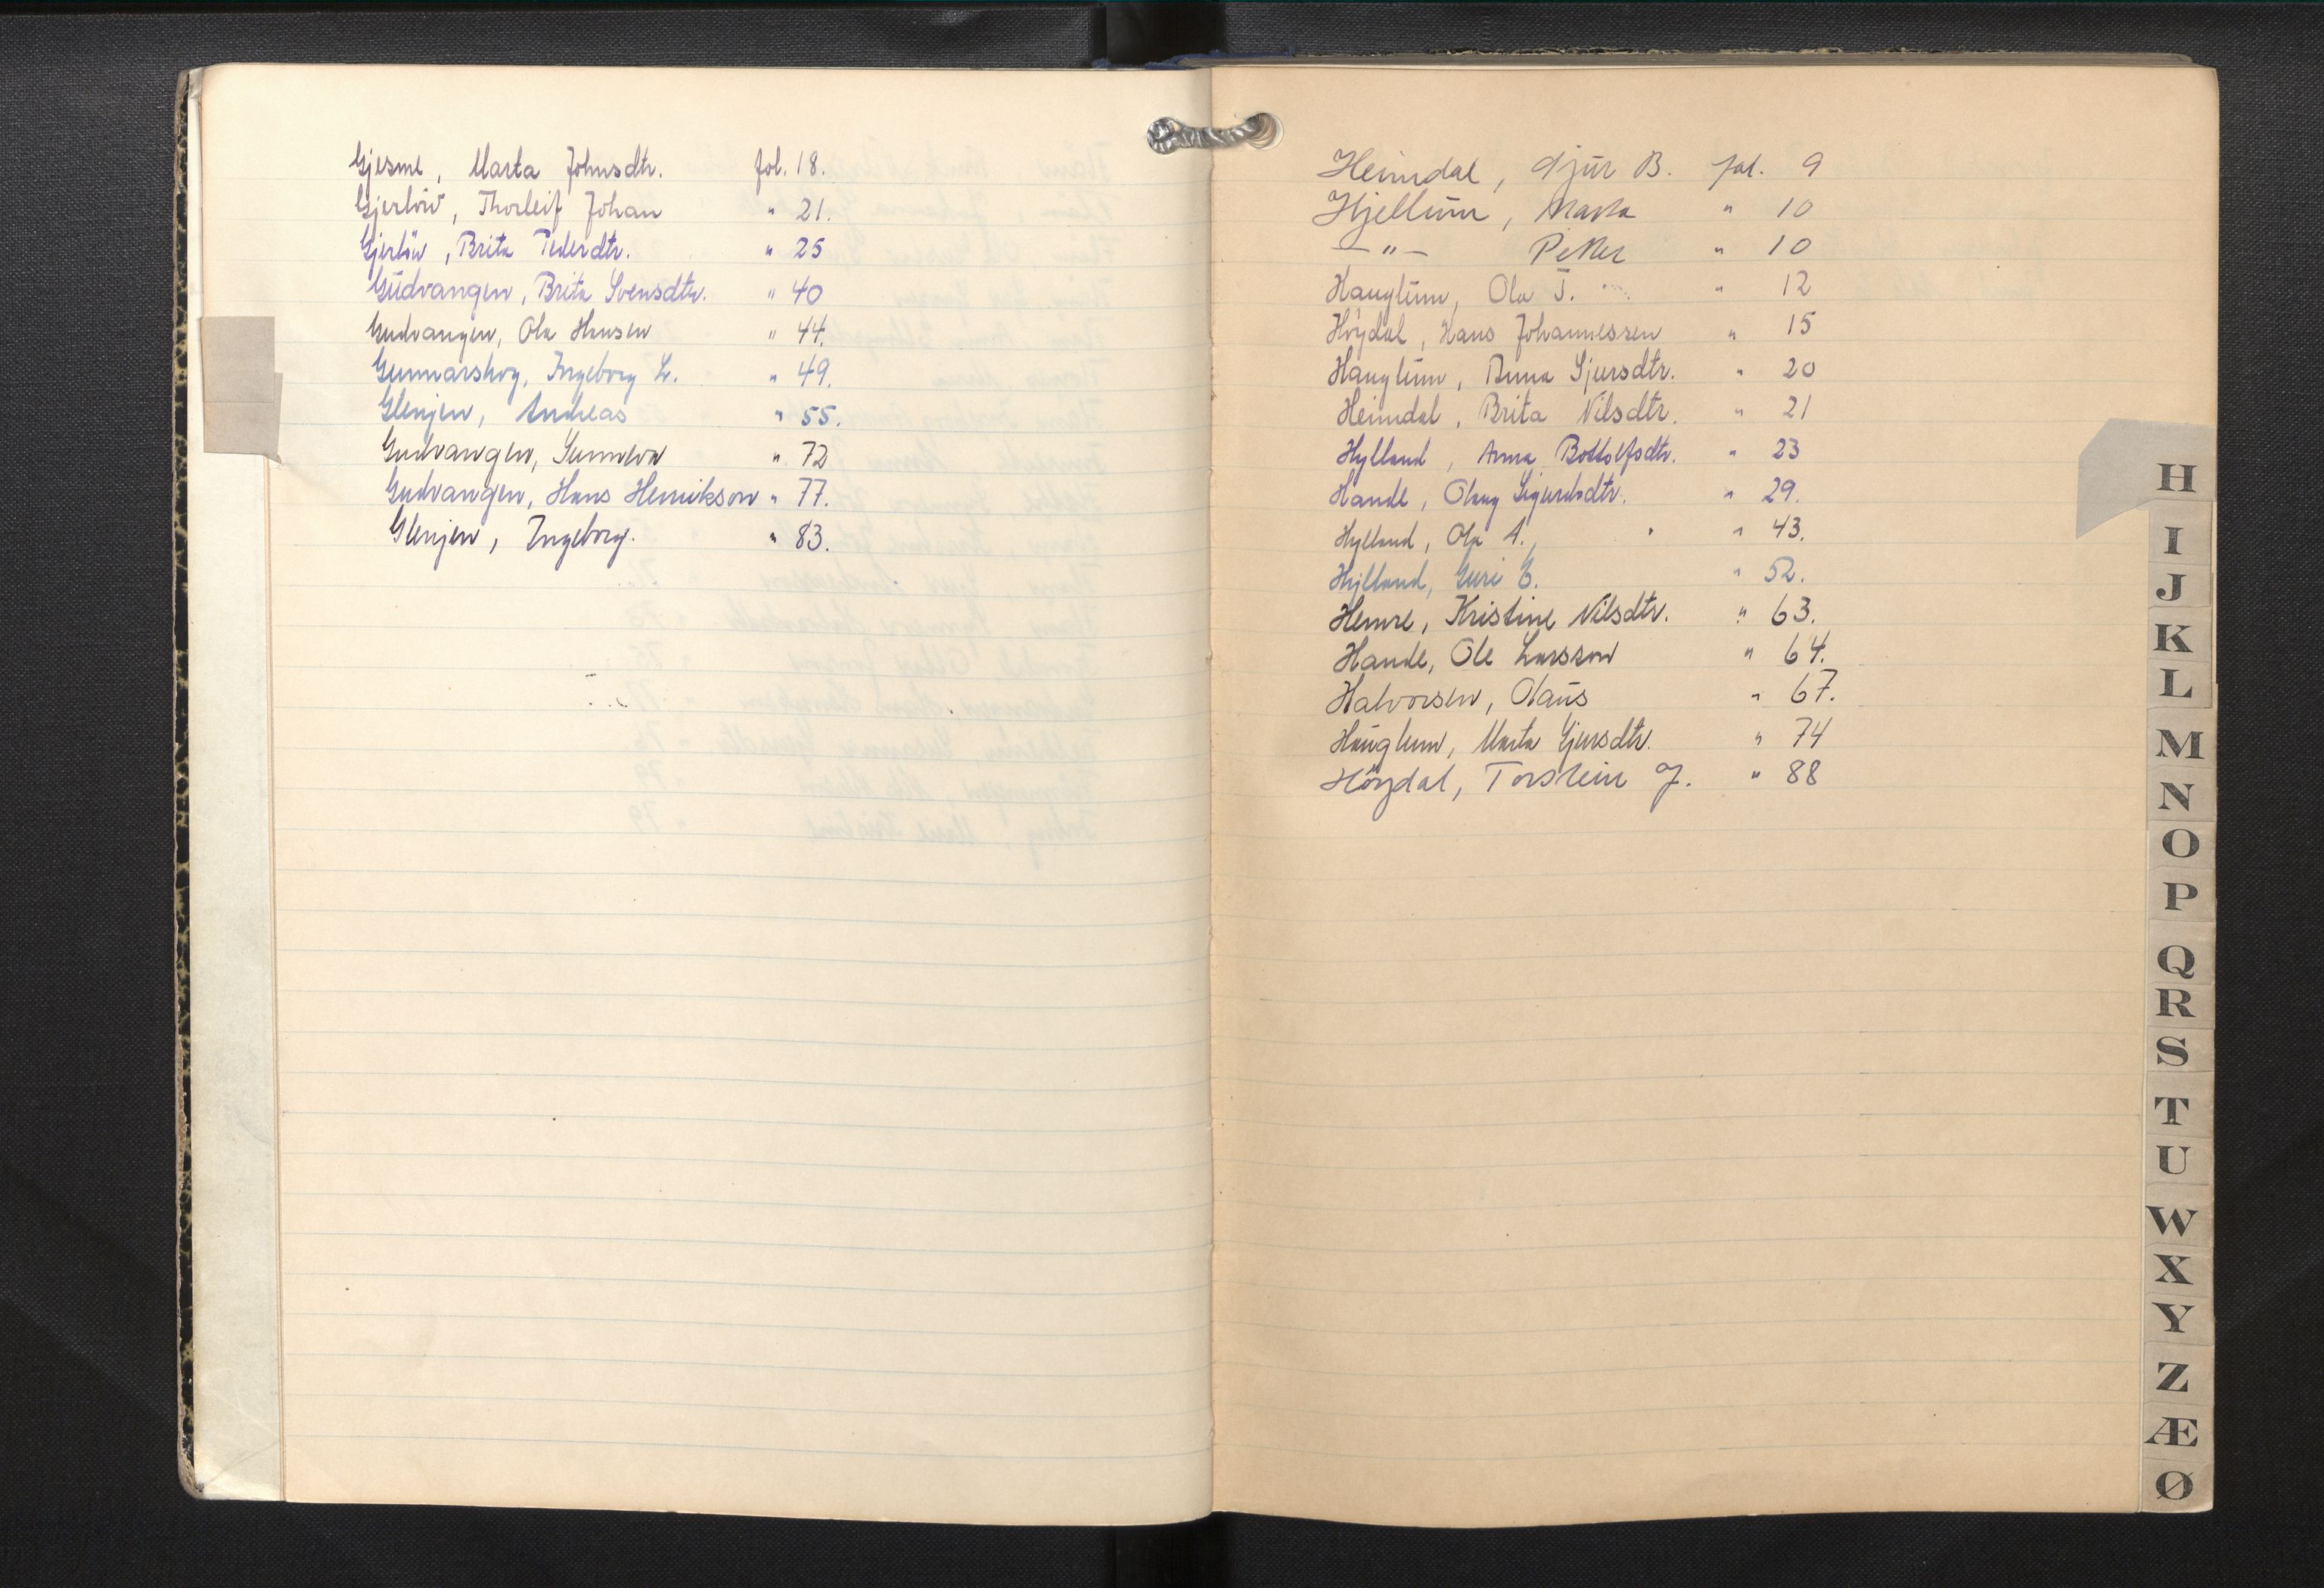 Gjesme, Marta Johnsdtr. fol. 18.
Gjerlöw, Thorleif Johan " 21.
Gjerlöw, Brita Pedersdtr. " 25
Gudvangen, Brita Svensdtr. " 40
Gudvangen, Ola Hansen " 44.
Gunnarskog, Ingeborg L. " 49.
Glenjen, Andreas " 55.
Gudvangen, Sunneva " 72
Gudvangen, Hans Henrikson " 77.
Glenjen, Ingeborg. " 83.
Heimdal, Gjur B. fol. 9
Hjellum, Marta " 10
— " — Petter " 10
Hauglum, Ola J. " 12
Höydal, Hans Johannessen " 15
Hauglum, Anna Sjursdtr. " 20
Heimdal, Brita Nilsdtr. " 21
Hylland, Anna Bottolfsdtr. " 23
Hande, Olaug Sigurdsdtr. " 29.
Hylland, Ola A., " 43.
Hylland, Guri E. " 52.
Hemre, Kristine Nilsdtr. " 63.
Hande, Ole Larsson " 64.
Halvorsen, Olaus " 67.
Hauglum, Marta Gjursdtr. " 74
Höydal, Torstein J. " 88
H
I
J
K
L
M
N
O
P
Q
R
S
T
U
W
X
Y
Z
Æ
Ø